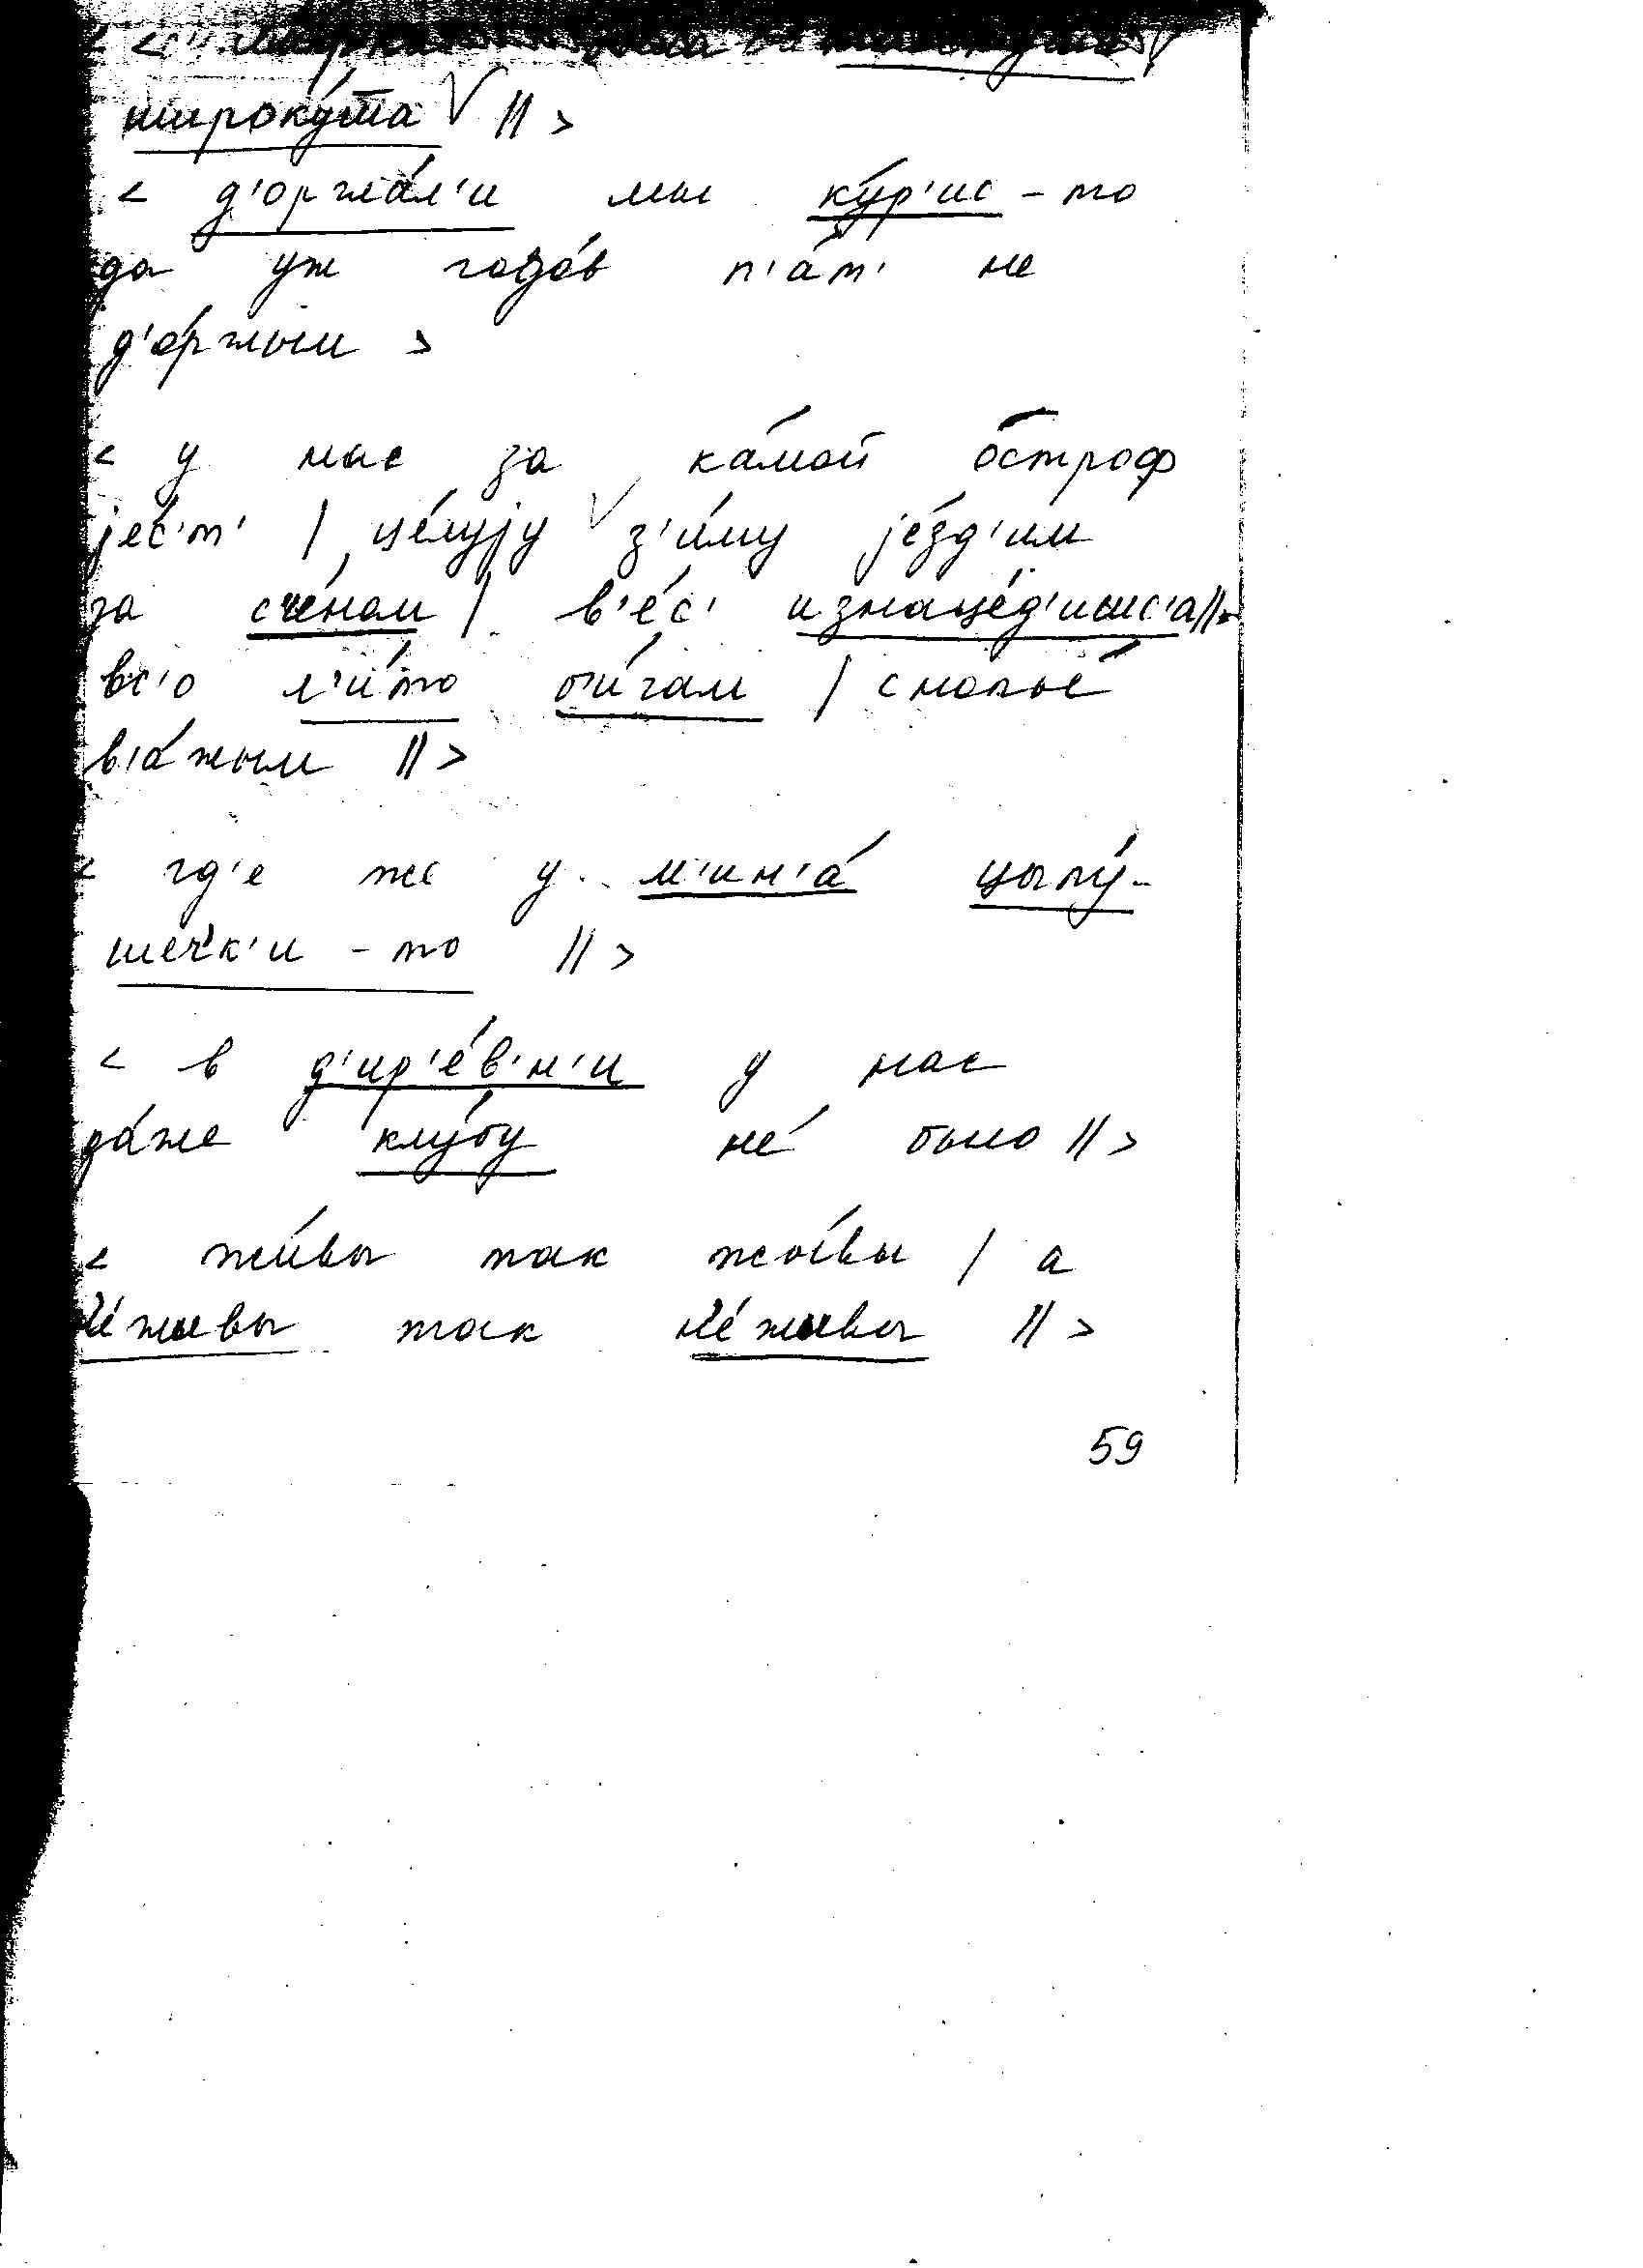 широку́та V ||>
< д'оржа́л'и мы ку́р'ис - то
да уж годо́в п'а́т' не
д'о́ржым >
< у нас за ка́мой о́строф
jе́с'т' | це́луjу V з'и́му jе́зд'им
за се́ном | в'е́с' изнаце́д'ишс'а||>
вс'о л'и́то би́гам | снопы́
в'а́жым ||>
< гд'е же у м'ин'а́ цыпу́-
шечк'и - то ||>
< в д'ир'е́в'н'и у нас
да́же клу́бу не́ было ||>
< жи́вы так жы́вы | а
не́живы так не́живы ||>
59